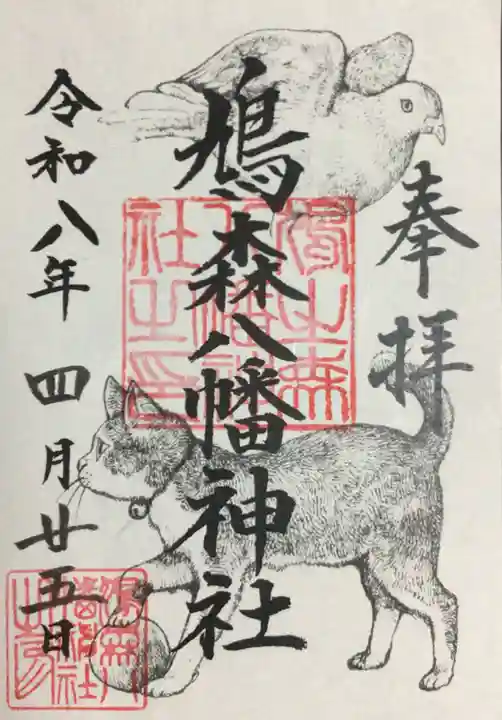 奉拝
鳩森八幡神社
令和八年四月廿五日